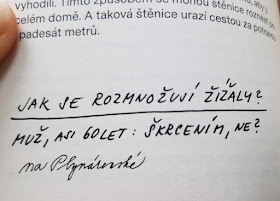 vyhodili. Tímto způsobem se mohou štěnice roznést po
celém domě. A taková štěnice urazí cestou za potravou
padesát metrů.
JAK SE ROZMNOŽUJÍ ŽÍŽALY?
MUŽ, ASI 60LET: ŠKRCENÍM, NE?
na Plynárenské